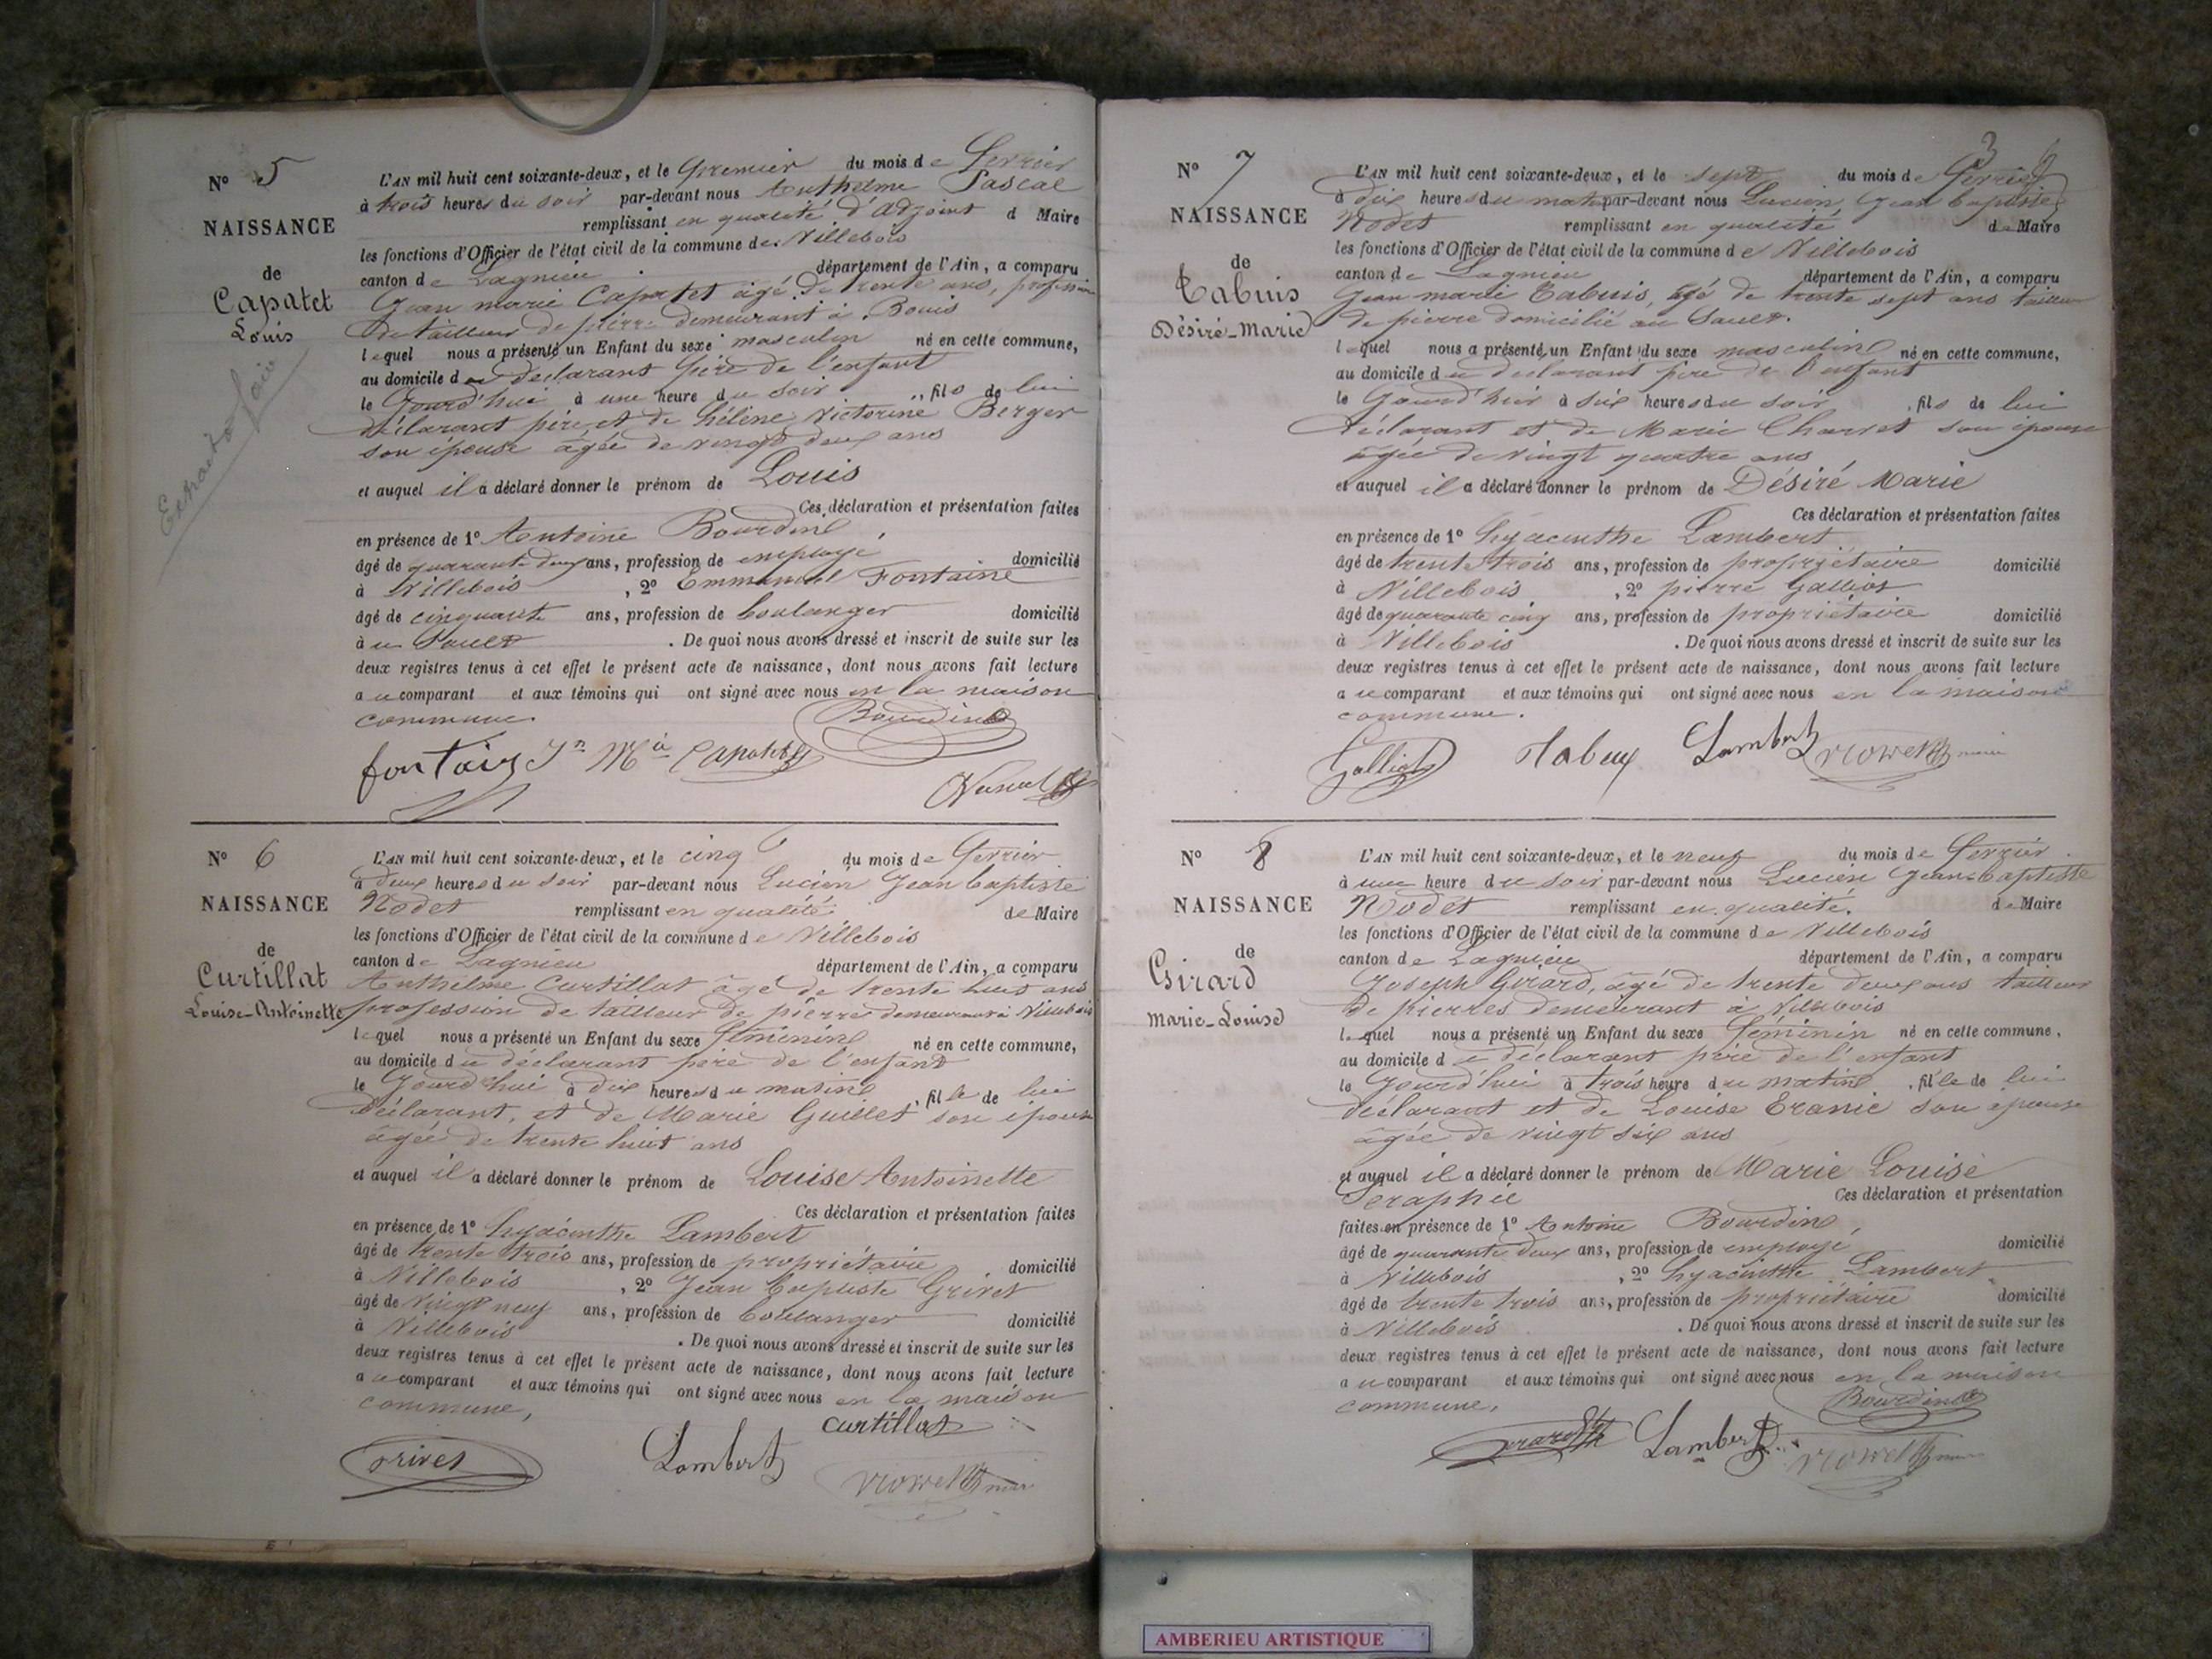 N° 5
NAISSANCE
de
Capatet
Louis
Extrait fais
L'AN mil huit cent soixante-deux, et le premier du mois de fevrier
à trois heures du soir par-devant nous Anthelme Pascal
remplissant en qualité d'adjoint d Maire
les fonctions d'Officier de l'état civil de la commune de Villebois
canton de Lagnieu département de l'Ain, a comparu
Jean marie Capatet âgé de trente ans, profession
de tailleur de pierre demeurant à Bouis
lequel nous a présenté un Enfant du sexe masculin né en cette commune,
au domicile du déclarant père de l'enfant
le Jourd'hui à une heure du soir, fils de lui
déclarant père, et de hélène Victorine Berger
son épouse âgée de vingt deux ans
et auquel il a déclaré donner le prénom de Louis
Ces déclaration et présentation faites
en présence de 1° Antoine Bourdin
âgé de quarante deux ans, profession de employé domicilié
à Villebois, 2° Emmanuel Fontaine
âgé de cinquante ans, profession de boulanger domicilié
à u Sault. De quoi nous avons dressé et inscrit de suite sur les
deux registres tenus à cet effet le présent acte de naissance, dont nous avons fait lecture
au comparant et aux témoins qui ont signé avec nous en la maison
commune.
Bourdin
fontaix Jn Mie Capatet
N° 6
NAISSANCE
de
Curtillat
Louise-Antoinette
L'AN mil huit cent soixante-deux, et le cinq du mois de fevrier
à deux heures du soir par-devant nous Lucien Jean baptiste
Nodet remplissant en qualité de Maire
les fonctions d'Officier de l'état civil de la commune de Villebois
canton de Lagnieu département de l'Ain, a comparu
Anthelme Curtillat âgé de trente huit ans
profession de tailleur de pierre demeurant à Villebois
lequel nous a présenté un Enfant du sexe féminin né en cette commune,
au domicile du déclarant père de l'enfant
le Jourd'hui à dix heures du matin, fille de lui
déclarant, et de Marie Guillet son épouse
âgée de trente huit ans
et auquel il a déclaré donner le prénom de Louise Antoinette
Ces déclaration et présentation faites
en présence de 1° hyacinthe Lambert
âgé de trente trois ans, profession de propriétaire domicilié
à Villebois, 2° Jean baptiste Grivet
âgé de vingt neuf ans, profession de boulanger domicilié
à Villebois. De quoi nous avons dressé et inscrit de suite sur les
deux registres tenus à cet effet le présent acte de naissance, dont nous avons fait lecture
au comparant et aux témoins qui ont signé avec nous en la maison
commune,
curtillat
Grivet Lambert
3
N° 7
NAISSANCE
de
Tabuis
Désiré-Marie
L'AN mil huit cent soixante-deux, et le sept du mois de fevrier
à dix heures du matin par-devant nous Lucien Jean baptiste
Nodet remplissant en qualité de Maire
les fonctions d'Officier de l'état civil de la commune de Villebois
canton de Lagnieu département de l'Ain, a comparu
Jean marie Tabuis, âgé de trente sept ans tailleur
de pierre domicilié au Sault.
lequel nous a présenté un Enfant du sexe masculin né en cette commune,
au domicile du déclarant père de l'enfant
le Jourd'hier à six heures du soir, fils de lui
déclarant et de Marie Charvet son épouse
âgée de vingt quatre ans
et auquel il a déclaré donner le prénom de Désiré Marie
Ces déclaration et présentation faites
en présence de 1° hyacinthe Lambert
âgé de trente trois ans, profession de propriétaire domicilié
à Villebois, 2° pierre Galliot
âgé de quarante cinq ans, profession de propriétaire domicilié
à Villebois. De quoi nous avons dressé et inscrit de suite sur les
deux registres tenus à cet effet le présent acte de naissance, dont nous avons fait lecture
au comparant et aux témoins qui ont signé avec nous en la maison
commune.
Galliot Tabuy Lambert maire
N° 8
NAISSANCE
de
Girard
Marie-Louise
L'AN mil huit cent soixante-deux, et le neuf du mois de fevrier
à une heure du soir par-devant nous Lucien Jean-baptiste
Nodet remplissant en qualité. de Maire
les fonctions d'Officier de l'état civil de la commune de Villebois
canton de Lagnieu département de l'Ain, a comparu
Joseph Girard, âgé de trente deux ans tailleur
de pierres demeurant à Villebois
lequel nous a présenté un Enfant du sexe féminin né en cette commune,
au domicile du déclarant père de l'enfant
le Jourd'hui à trois heure du matin, fille de lui
déclarant et de Louise Eranie son épouse
âgée de vingt six ans
et auquel il a déclaré donner le prénom de Marie Louise
Seraphie Ces déclaration et présentation
faites en présence de 1° Antoine Bourdin,
âgé de quarante deux ans, profession de employé domicilié
à Villebois, 2° hyacinthe Lambert
âgé de trente trois ans, profession de propriétaire domicilié
à Villebois. De quoi nous avons dressé et inscrit de suite sur les
deux registres tenus à cet effet le présent acte de naissance, dont nous avons fait lecture
au comparant et aux témoins qui ont signé avec nous en la maison
commune. Bourdin
Girard Lambert
AMBERIEU ARTISTIQUE